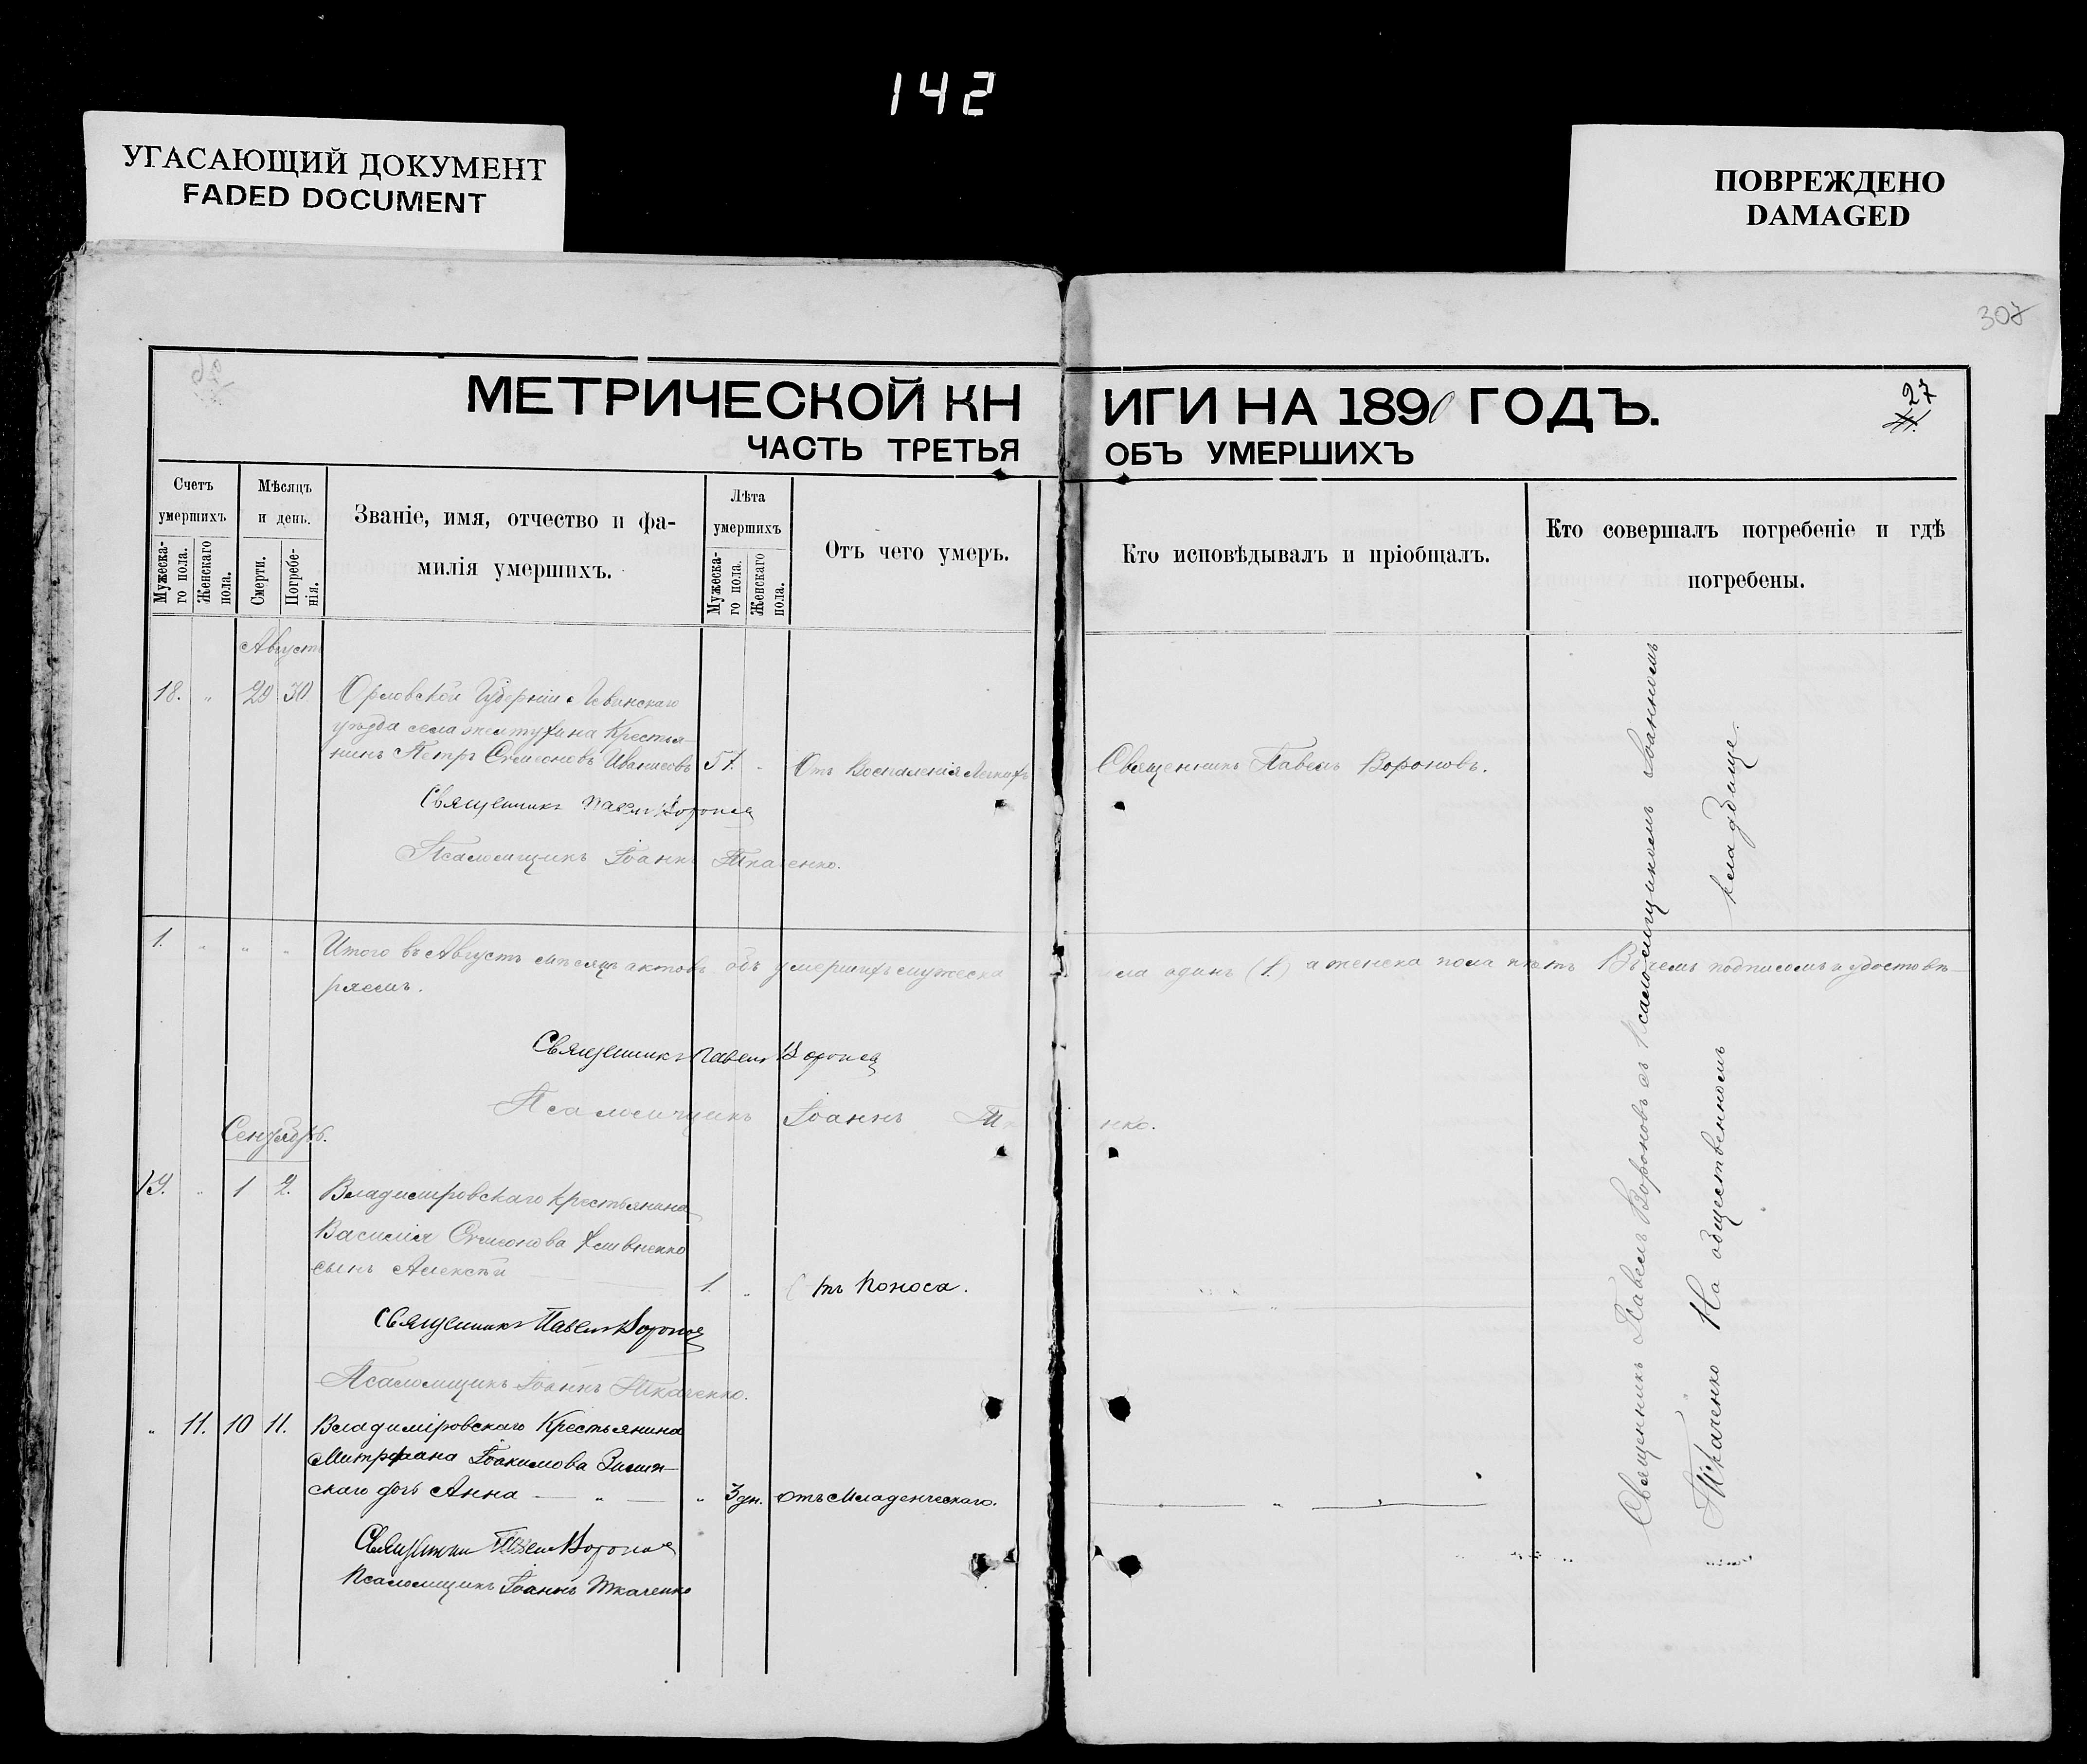 142
УГАСАЮЩИЙ ДОКУМЕНТ
FADED DOCUMENT
ПОВРЕЖДЕНО
DAMAGED
307
27
МЕТРИЧЕСКОЙ КНИГИ НА 1890 ГОДЪ.
ЧАСТЬ ТРЕТЬЯ ОБЪ УМЕРШИХЪ
Счетъ умершихъ
Мужескаго пола.
Женскаго пола.
Мѣсяцъ и день.
Смерти.
Погребенія.
Званіе, имя, отчество и фамилія умершихъ.
Лѣта умершихъ
Мужескаго пола.
Женскаго пола.
Отъ чего умеръ.
Кто исповѣдывалъ и пріобщалъ.
Кто совершалъ погребеніе и гдѣ погребены.
Августъ
18. " 29 30 Орловской Губерніи Ливенскаго
уѣзда села Крестья-
нинъ Петръ Симеоновъ 57. " Отъ Воспаленія Легкихъ Священникъ Павелъ Вороновъ.
Священникъ Павелъ Вороновъ
Псаломщикъ Іоаннъ Ткаченко.
1. " " " Итого въ Августѣ мѣсяцѣ актовъ объ умершихъ мужеска пола одинъ (1.) а женска пола нѣтъ В чемъ подписомъ и удостовѣ-
ряемъ.
Священникъ Павелъ Вороновъ
Псаломщикъ Іоаннъ Ткаченко.
Сентябрь.
19. " 1 2. Владимировскаго крестьянина
Василія Симеонова
сынъ Алексѣй 1. " Отъ Поноса. "
Священникъ Павелъ Вороновъ
Псаломщикъ Іоаннъ Ткаченко.
" 11. 10 11. Владиміровскаго Крестьянина
Митрофана Іоакимова Зимин-
скаго дочь Анна " " 3 дн. Отъ Младенческаго. "
Священникъ Павелъ Вороновъ
Псаломщикъ Іоаннъ Ткаченко
Священникъ Павелъ Вороновъ съ Псаломщикомъ Іоанномъ
Ткаченко На общественномъ кладбище.